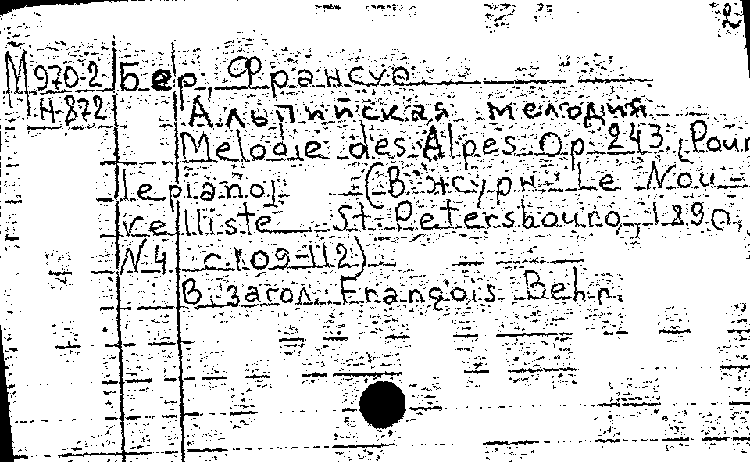 2
М 970-2 Бер, Франсуа
1-Н-872 Альпийская мелодия
Melodie des Alpes Op 243. [Pour
le piano] (В журн. Le Nou-
velliste St. Petersbourg, 1890,
N 4 с. 109-112)
В загол. François Behr.